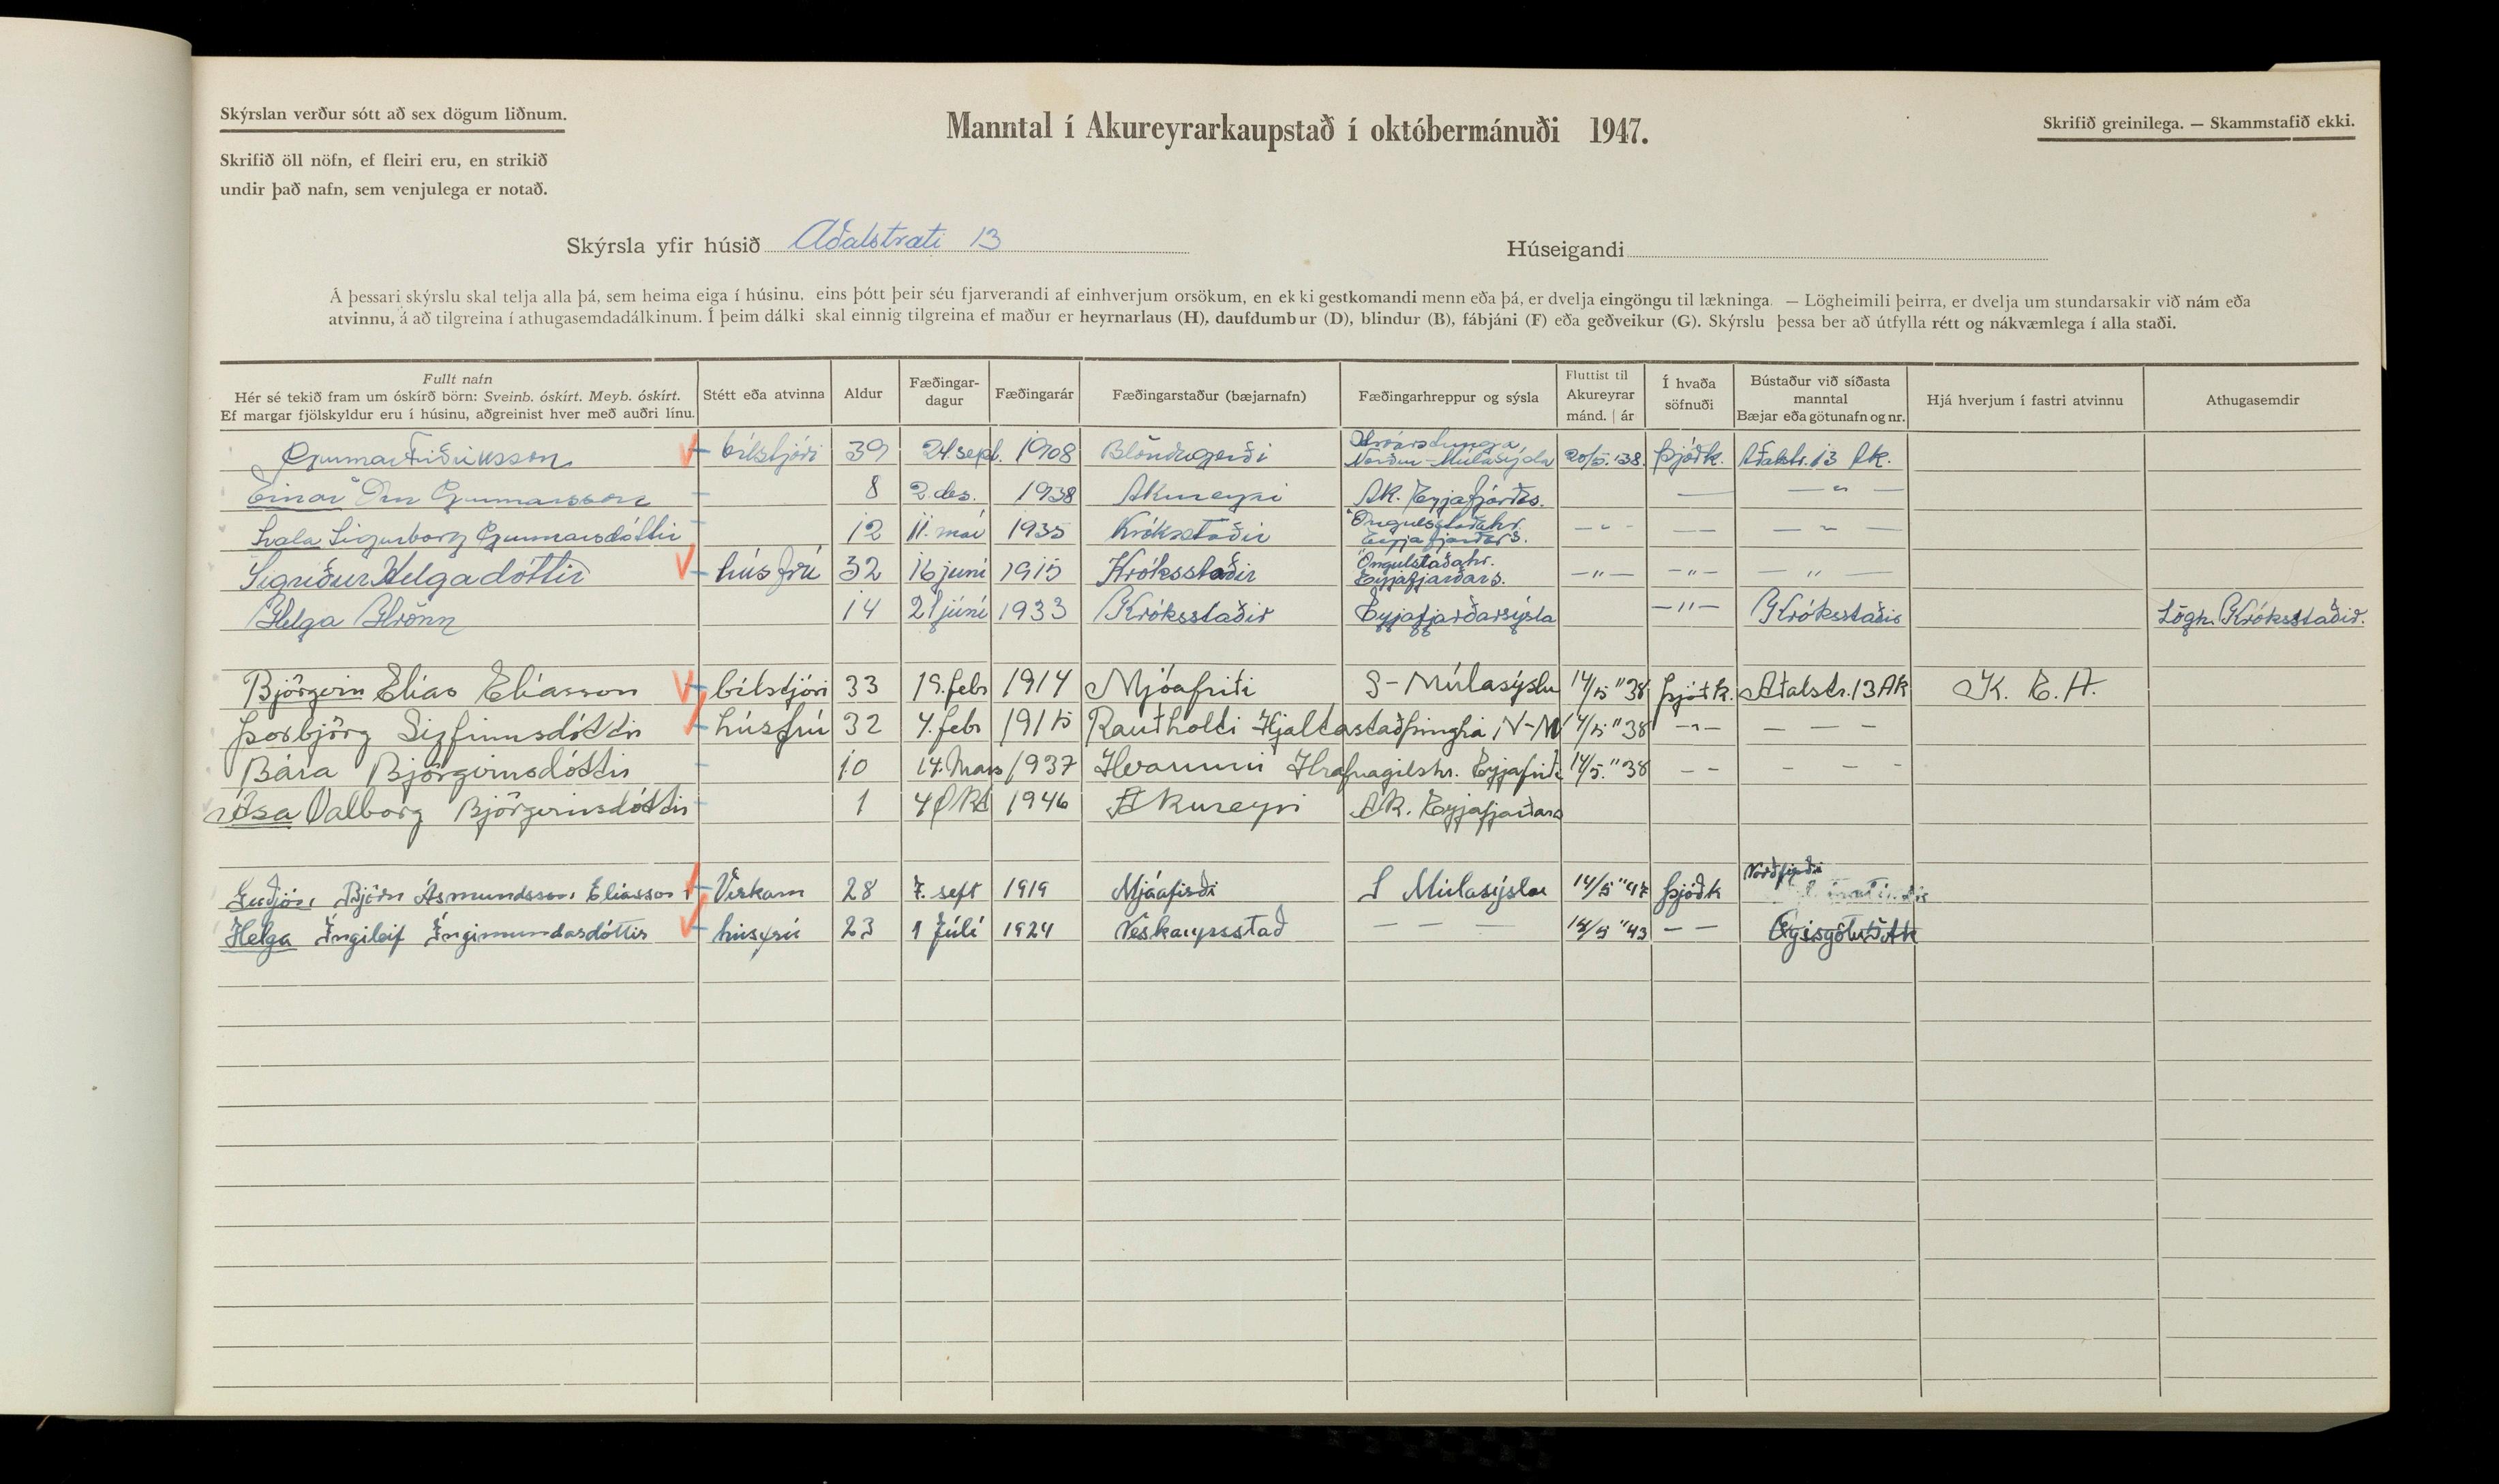 Skýrslan verður sótt að sex dögum liðnum.
Manntal í Akureyrarkaupstað í októbermánuði 1947.
Skrifið greinilega. — Skammstafið ekki.
Skrifið öll nöfn, ef fleiri eru, en strikið
undir það nafn, sem venjulega er notað.
Skýrsla yfir húsið Aðalstræti 13
Húseigandi
Á þessari skýrslu skal telja alla þá, sem heima eiga í húsinu, eins þótt þeir séu fjarverandi af einhverjum orsökum, en ekki gestkomandi menn eða þá, er dvelja eingöngu til lækninga. — Lögheimili þeirra, er dvelja um stundarsakir við nám eða
atvinnu, á að tilgreina í athugasemdadálkinum. Í þeim dálki skal einnig tilgreina ef maður er heyrnarlaus (H), daufdumbur (D), blindur (B), fábjáni (F) eða geðveikur (G). Skýrslu þessa ber að útfylla rétt og nákvæmlega í alla staði.
Fullt nafn
Hér sé tekið fram um óskírð börn: Sveinb. óskírt. Meyb. óskírt.
Ef margar fjölskyldur eru í húsinu, aðgreinist hver með auðri línu.
Stétt eða atvinna
Aldur
Fæðingar-
dagur
Fæðingarár
Fæðingarstaður (bæjarnafn)
Fæðingarhreppur og sýsla
Fluttist til
Akureyrar
mánd. | ár
Í hvaða
söfnuði
Bústaður við síðasta
manntal
Bæjar eða götunafn og nr.
Hjá hverjum í fastri atvinnu
Athugasemdir
Gunnar Friðriksson bílstjóri 39 24. sept. 1908 Blöndugerði Hróarstunga Norður-Múlasýsla 20/5. '38. þjóðk. Aðalstr. 13 Ak.
Einar Örn Gunnarsson 8 2. des. 1938 Akureyri Ak. Eyjafjarðs. — — " —
Svala Sigurborg Gunnarsdóttir 12 11. maí 1935 Króksstaðir Öngulsstaðahr. Eyjafjarðars. — " — — — — " —
Sigríður Helgadóttir húsfrú 32 16 júní 1915 Króksstaðir Öngulstaðahr. Eyjafjarðars. — " — — " — — " —
Helga Hrönn 14 21 júní 1933 Króksstaðir Eyjafjarðarsýsla — " — Króksstaðir Lögh. Króksstaðir.
Björgvin Elías Elíasson bílstjóri 33 19. febr 1914 Mjóafirði S-Múlasýslu 14/5 "38 þjóðk. Aðalstr. 13 Ak K. E. A.
Þorbjörg Sigfinnsdóttir húsfrú 32 4. febr 1915 Rauðholti Hjaltastaðþinghá N-M 14/5 "38 — " — — — —
Bára Björgvinsdóttir 10 14. Mars 1937 Hvammi Hrafnagilshr. Eyjafirði 14/5. "38 — — — — —
Ása Valborg Björgvinsdóttir 1 4 Okt 1946 Akureyri Ak. Eyjafjarðars
Guðjón Björn Ásmundsson Elíasson Verkam 28 7. sept 1919 Mjóafirði S Múlasýslu 14/5 "47 þjóðk Norðfirði
Helga Ingileif Ingimundardóttir húsfrú 23 1 Júlí 1924 Neskaupsstað — — — 15/5 "43 — — Ægisgötu Ak